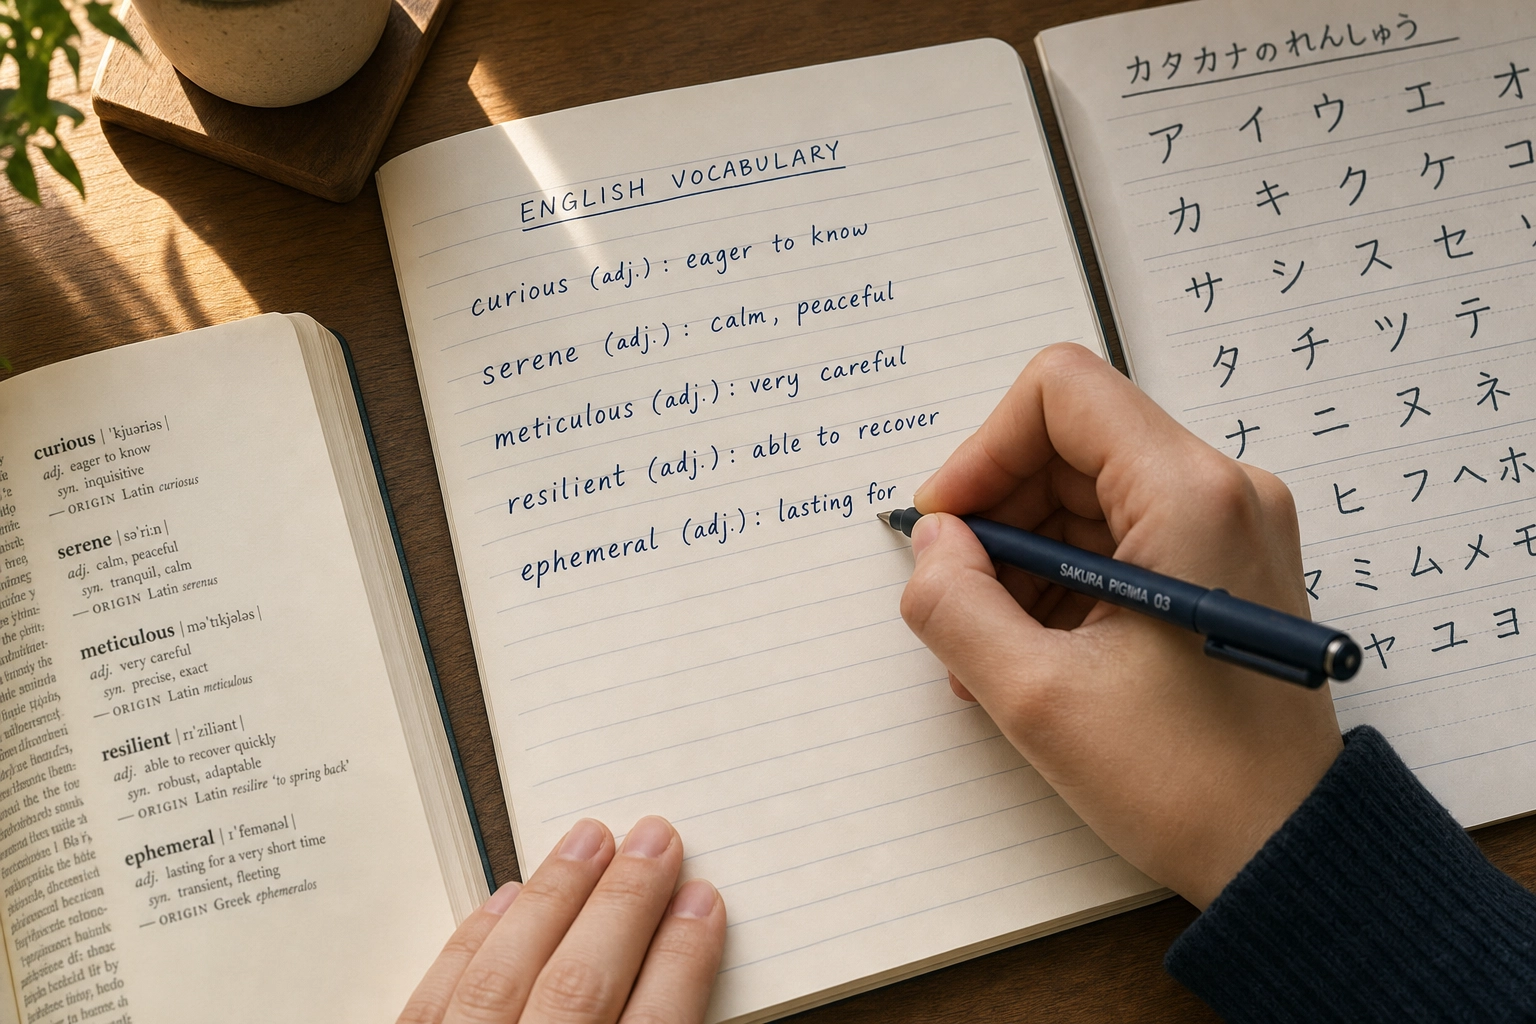 curious | ˈkjʊəriəs |
adj. eager to know
syn. inquisitive
— ORIGIN Latin curiosus
serene | səˈriːn |
adj. calm, peaceful
syn. tranquil, calm
— ORIGIN Latin serenus
meticulous | məˈtɪkjələs |
adj. very careful
syn. precise, exact
— ORIGIN Latin meticulous
resilient | rɪˈziliənt |
adj. able to recover quickly
syn. robust, adaptable
— ORIGIN Latin resilire ‘to spring back’
ephemeral | ɪˈfemənəl |
adj. lasting for a very short time
syn. transient, fleeting
— ORIGIN Greek ephemeralos
ENGLISH VOCABULARY
curious (adj.) : eager to know
serene (adj.) : calm, peaceful
meticulous (adj.) : very careful
resilient (adj.) : able to recover
ephemeral (adj.) : lasting for
SAKURA PIGMA 03
カタカナのれんしゅう
ア イ ウ エ オ
カ キ ク ケ コ
サ シ ス セ
タ チ ツ テ
ナ ニ ヌ ネ
ヒ フ ヘ ホ
マ ミ ム メ モ
ヤ ユ ヨ